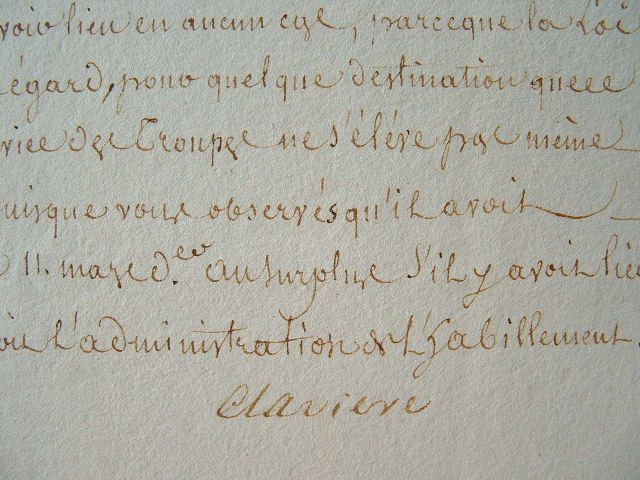 voir lieu en aucun cas, parceque la Loi
égard, pour quelque destination que ce
vice des Troupes ne s'élève pas même
uisque vous observés qu'il avoit
11. mars d.er au surplus s'il y avoit lieu
oit l'administration de l'habillement.
Claviere